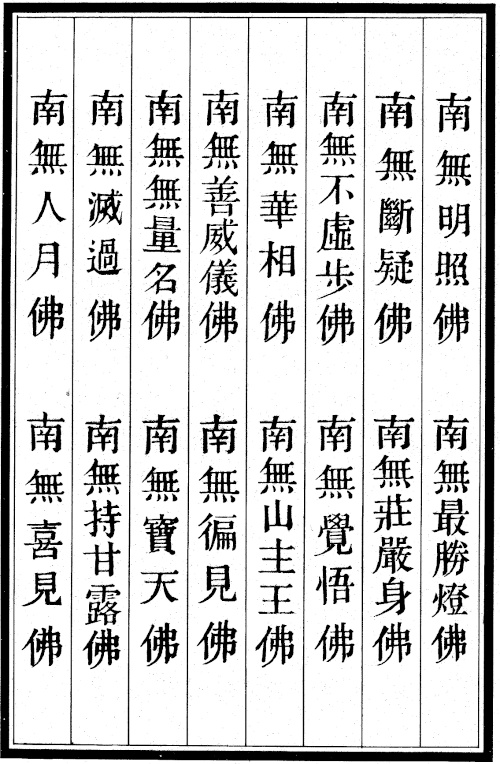 南無明照佛　南無最勝燈佛
南無斷疑佛　南無莊嚴身佛
南無不虛步佛　南無覺悟佛
南無華相佛　南無山主王佛
南無善威儀佛　南無徧見佛
南無無量名佛　南無寶天佛
南無滅過佛　南無持甘露佛
南無人月佛　南無喜見佛